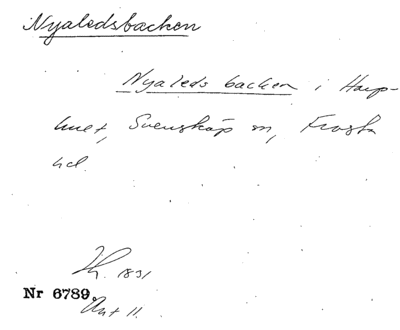 Nyaledsbacken
Nyaleds backen i Harp-
huset, Svensköp sn, Frosta
hd.
Th. 1831
Nr 6789.
Ant 11.